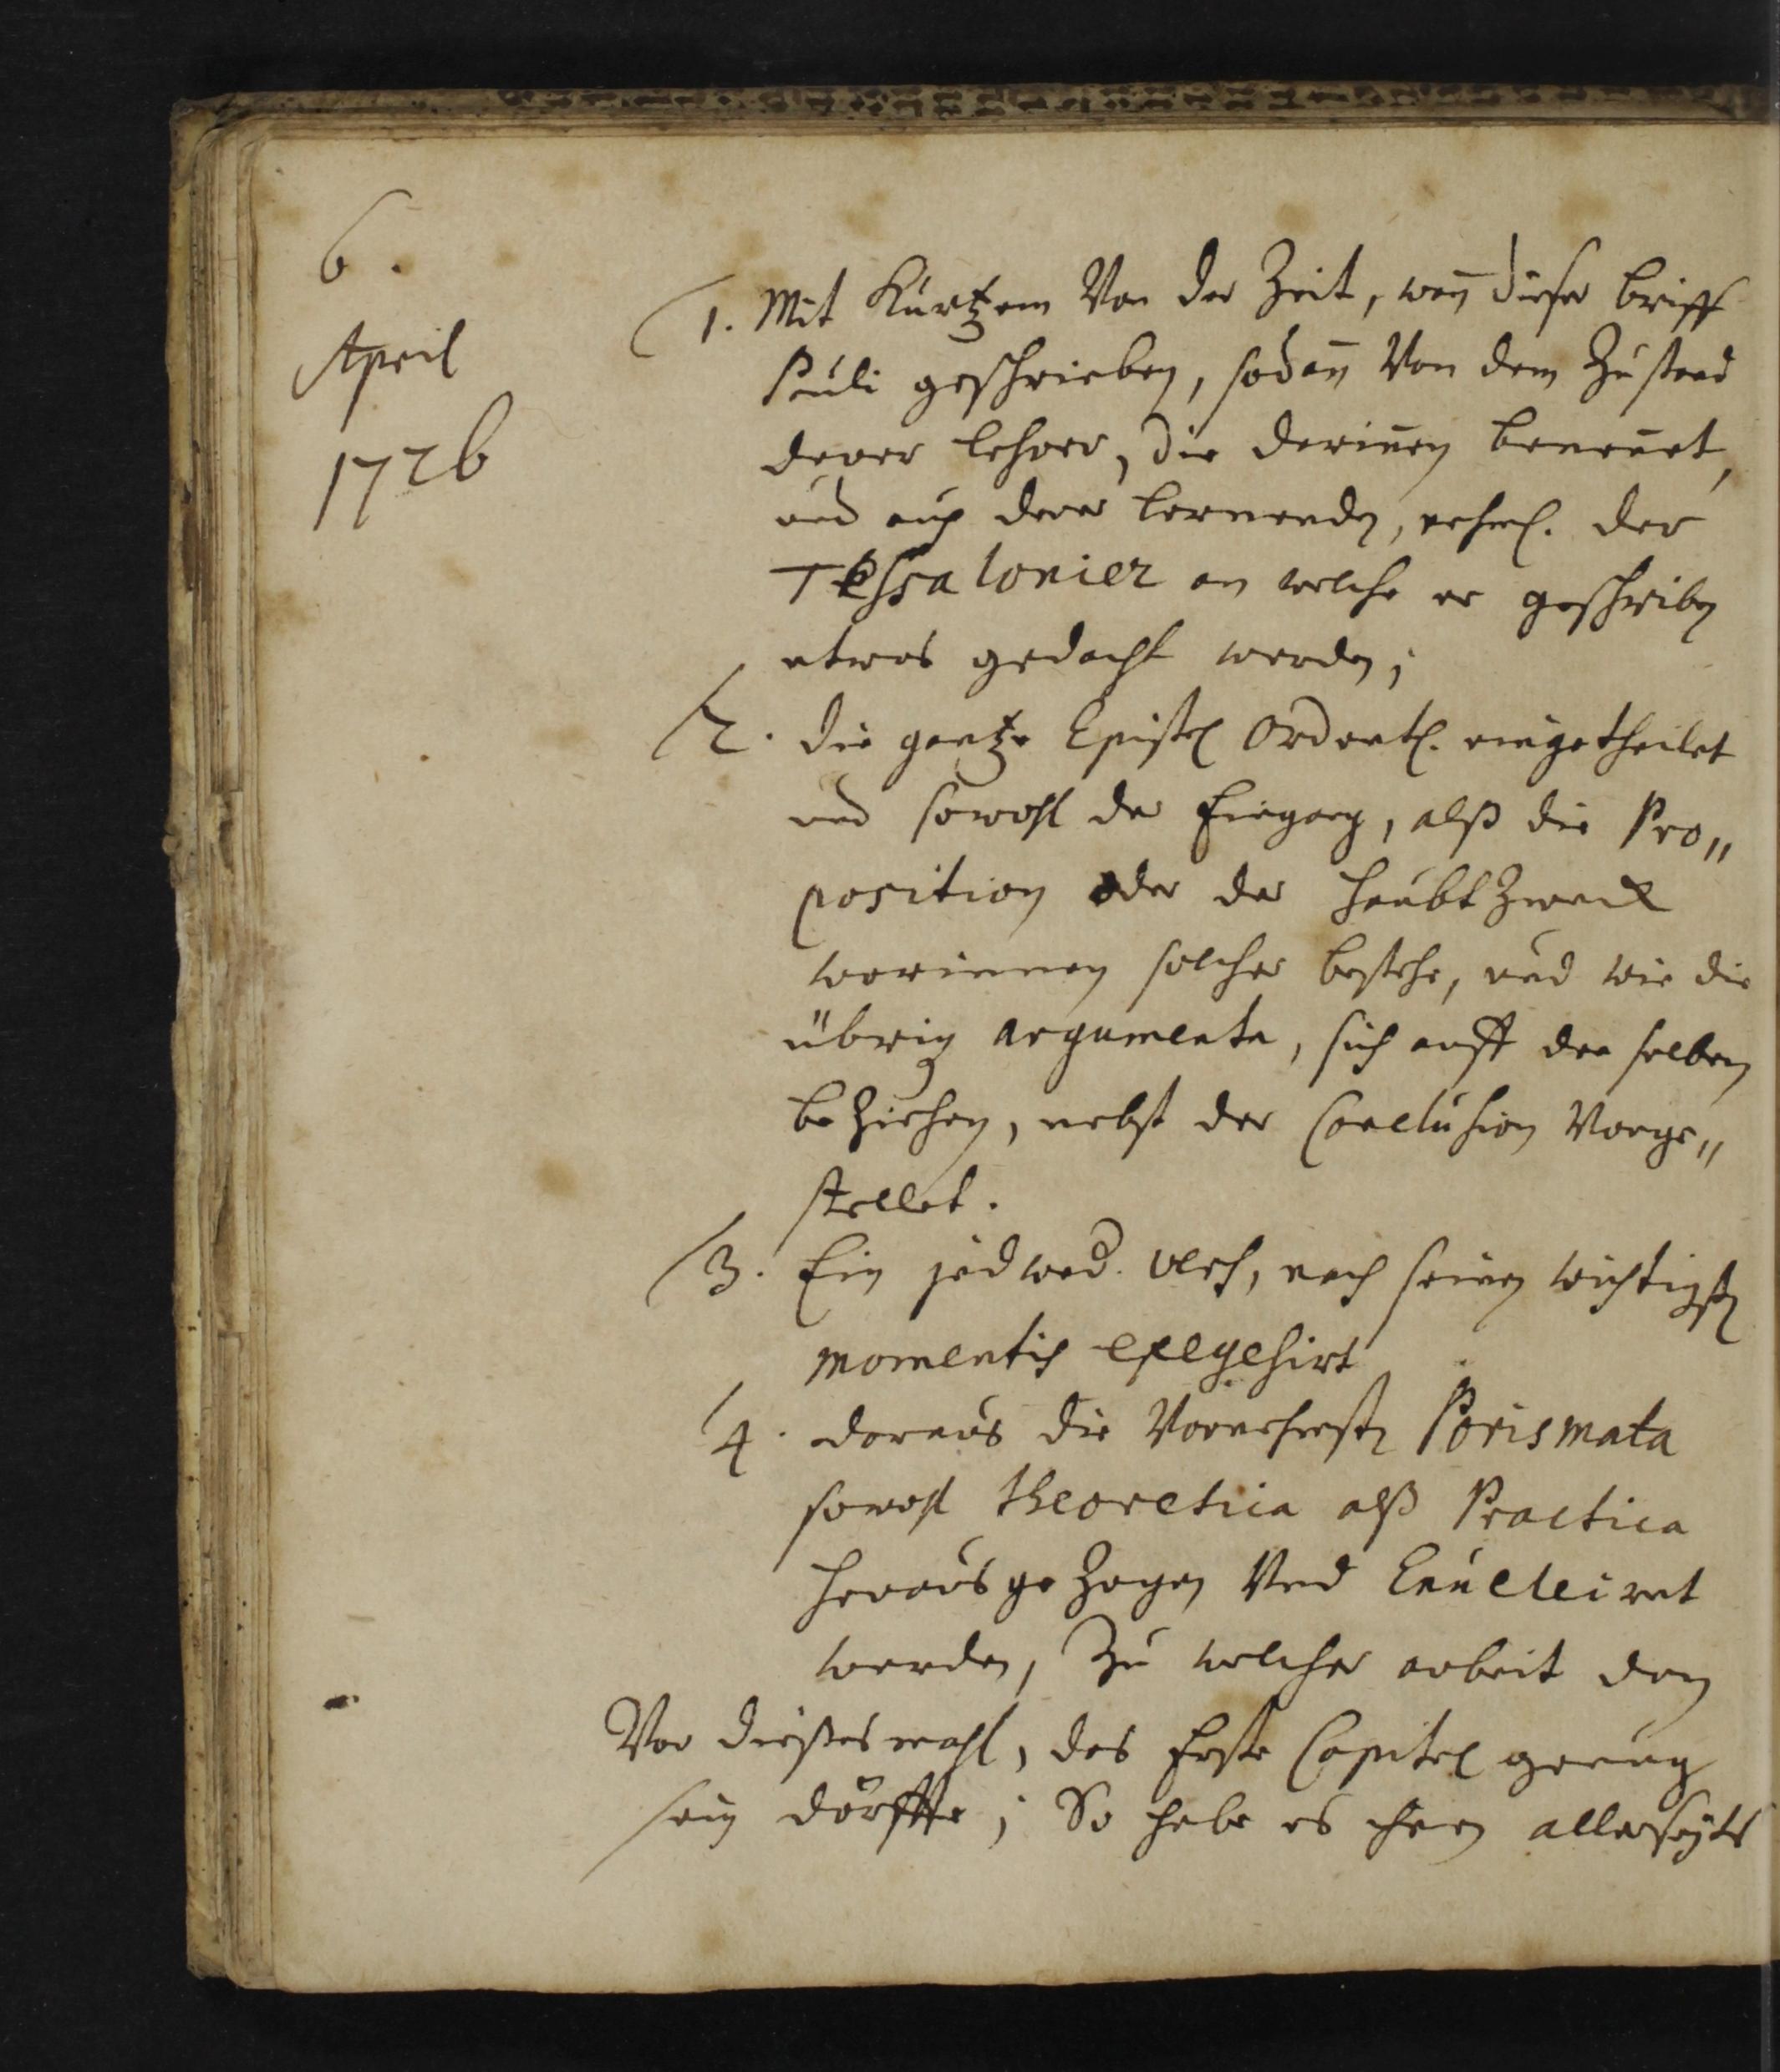 6.
April
1726
1. Mit Kurtzem Von der Zeit, wan̄ dieser brieff
Pauli geschrieben, sodan̄ Von dem Zustand
derer lehrer, die darinnen benennet,
und auch derer lernenden, nehml. der
Tessalonier an welche er geschrieben
etwas gedacht werden;
2. die gantze Epistel Ordentl. eingetheilet
und sowohl der Eingang, alß die Pro„
position oder der Haubt Zweck
worinnen solcher bestehe, und wie die
übrigen argumenta, sich auff den selben
beziehen, nebst der Conclusion Vorge„
stellet.
3. Ein jedwed. vers, nach seinen wichtigsten
momentis exegesirt
4. daraus die Vornehmsten Porismata
sowohl theoretica alß Practica
herausgezogen Und Enucleiret
werden, Zu welcher arbeit dan
Vor dießes mahl, das Erste Capitel genung
sein dörffte; So habe es ihnen allerseyts